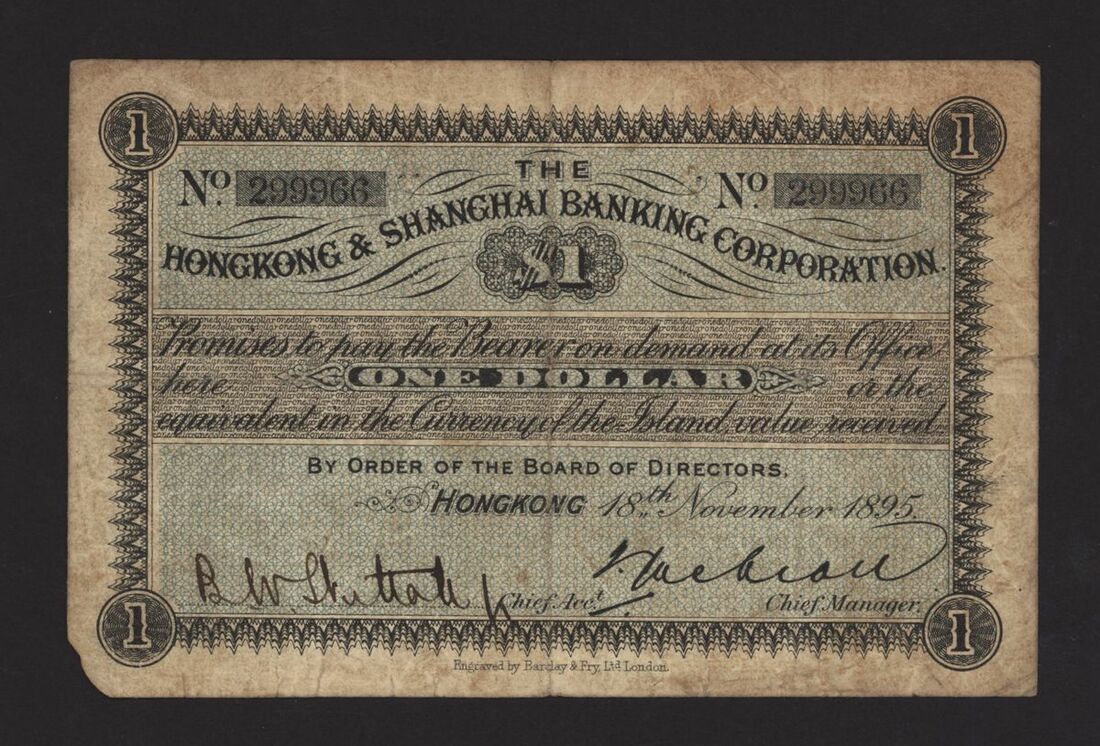 1 1
THE
No. 299966 No. 299966
HONGKONG & SHANGHAI BANKING CORPORATION.
$1
Promises to pay the Bearer on demand at its Office
here ONE DOLLAR or the
equivalent in the Currency of the Island value received
BY ORDER OF THE BOARD OF DIRECTORS.
HONGKONG 18th November 1895.
B.W.
Chief Acct. Chief Manager.
1 1
Engraved by Barclay & Fry, Ltd London.